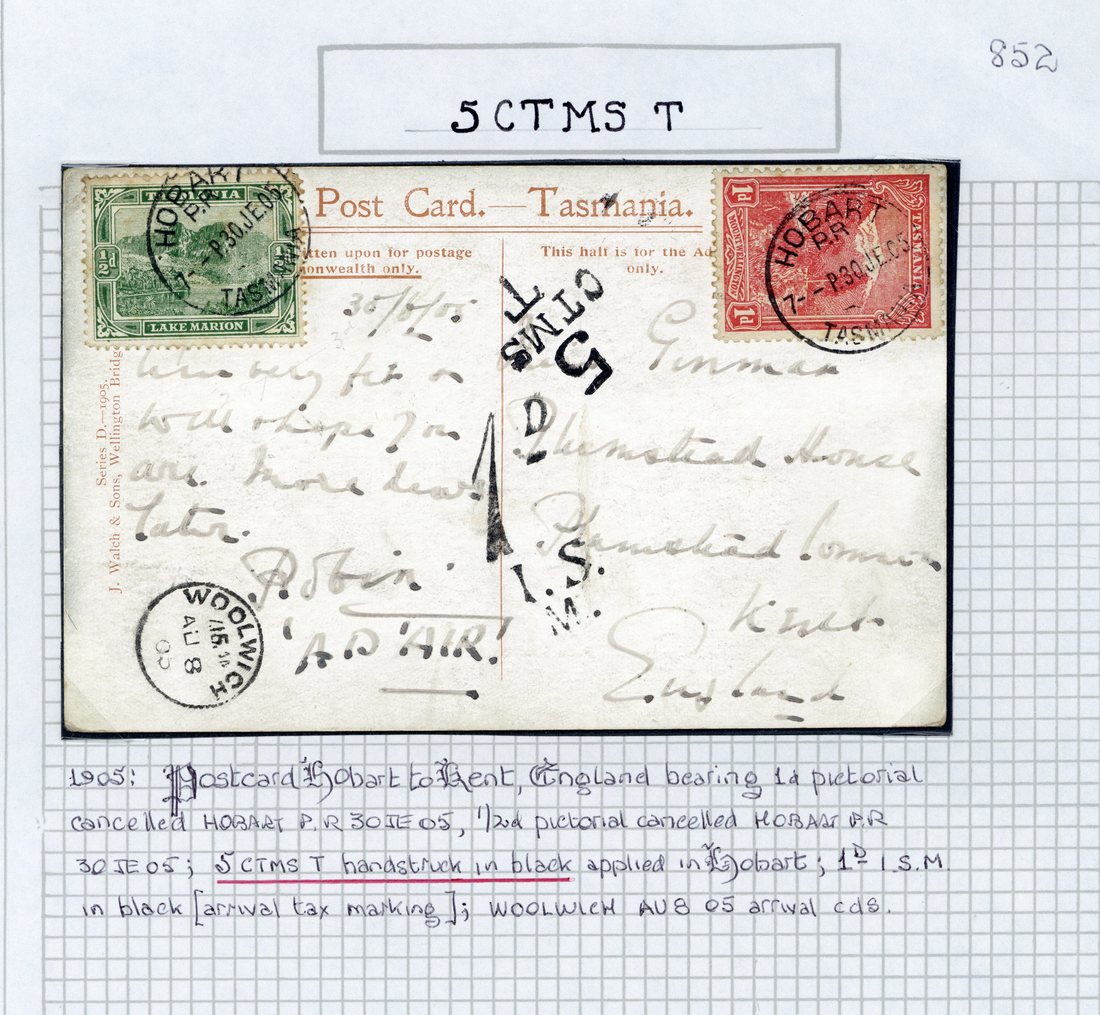 852
5 CTMS T
Post Card.—Tasmania.
TASMANIA
½d
LAKE MARION
HOBART
P.R
7- -P.30 JE.05
TASMANIA
TASMANIA
1d
1d
HOBART
P.R
7- -P.30 JE.05
TASMANIA
itten upon for postage
onwealth only.
This half is for the Ad
only.
Series D.—1905.
J. Walch & Sons, Wellington Bridge
5
CTMS
T
1 D
I.S.M.
30/6/05
very fit
well & hope you
are. More
later.
Robin
'AD 'AIR'.
Ginman
Plumstead House
Plumstead Common
Kent
England
WOOLWICH
AU 8
05
1905: Postcard Hobart to Kent, England bearing 1d pictorial
cancelled HOBART P.R 30 JE 05, 1/2d pictorial cancelled HOBART P.R
30 JE 05; 5 CTMS T handstruck in black applied in Hobart; 1D I.S.M.
in black [arrival tax marking]; WOOLWICH AU 8 05 arrival cds.